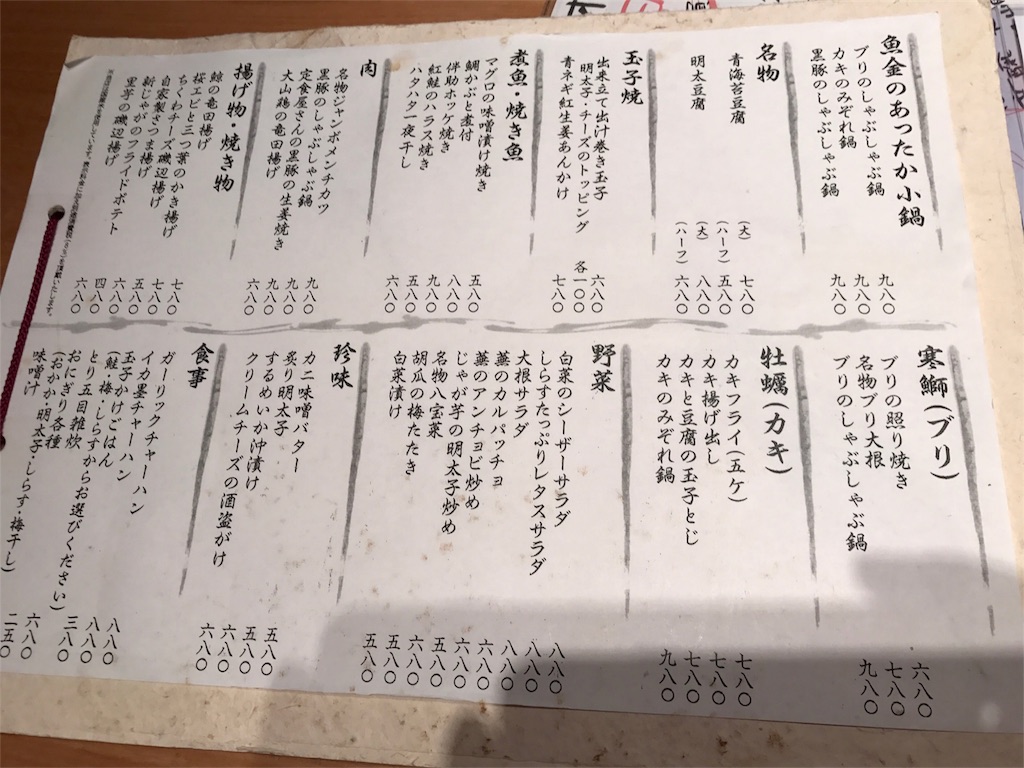 魚金のあったか小鍋
ブリのしゃぶしゃぶ鍋 九八〇
カキのみぞれ鍋 九八〇
黒豚のしゃぶしゃぶ鍋 九八〇
名物
青海苔豆腐 (大) 七八〇
(ハーフ) 五八〇
明太豆腐 (大) 八八〇
(ハーフ) 六八〇
玉子焼
出来立て出汁巻き玉子 六八〇
明太子・チーズのトッピング 各一〇〇
青ネギ紅生姜あんかけ 七八〇
煮魚・焼き魚
マグロの味噌漬け焼き 五八〇
鯛かぶと煮付 八八〇
伴助ホッケ焼き 九八〇
紅鮭のハラス焼き 五八〇
ハタハタ一夜干し 六八〇
肉
名物ジャンボメンチカツ 九八〇
黒豚のしゃぶしゃぶ鍋 九八〇
定食屋さんの黒豚の生姜焼き 九八〇
大山鶏の竜田揚げ 六八〇
揚げ物・焼き物
鯨の竜田揚げ 七八〇
桜エビと三つ葉のかき揚げ 七八〇
ちくわチーズ磯辺揚げ 五八〇
自家製さつま揚げ 六八〇
新じゃがのフライドポテト 四八〇
里芋の磯辺揚げ 六八〇
寒鰤(ブリ)
ブリの照り焼き 六八〇
名物ブリ大根 七八〇
ブリのしゃぶしゃぶ鍋 九八〇
牡蠣(カキ)
カキフライ(五ケ) 七八〇
カキ揚げ出し 七八〇
カキと豆腐の玉子とじ 七八〇
カキのみぞれ鍋 九八〇
野菜
白菜のシーザーサラダ 八八〇
しらすたっぷりレタスサラダ 八八〇
大根サラダ 八八〇
蕪のカルパッチョ 六八〇
蕪のアンチョビ炒め 六八〇
じゃが芋の明太子炒め 五八〇
名物八宝菜 六八〇
胡瓜の梅たたき 五八〇
白菜漬け 五八〇
珍味
カニ味噌バター 五八〇
炙り明太子 五八〇
するめいか沖漬け 六八〇
クリームチーズの酒盗がけ 六八〇
食事
ガーリックチャーハン 八八〇
イカ墨チャーハン 八八〇
玉子かけごはん 三八〇
(鮭・梅・しらすからお選びください)
とり五目雑炊 六八〇
おにぎり各種 二五〇
(おかか・明太子・しらす・梅干し)
味噌汁